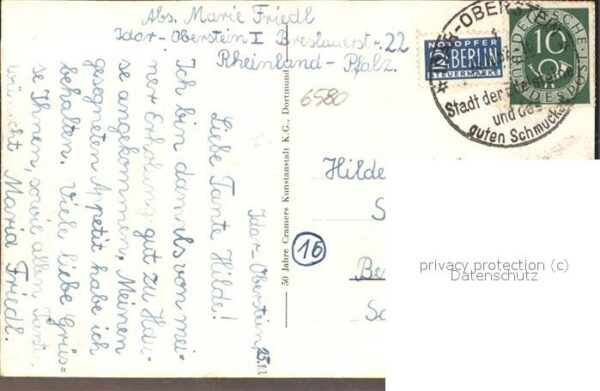 Abs. Marie Friedl
Idar-Oberstein I Breslauerstr. 22
Rheinland-Pfalz.
6580
Idar-Oberstein, 23.
Liebe Tante
Hilde!
Ich bin damals von mei-
ner Erholung gut zu Hau-
se angekommen. Meinen
gesegneten Appetit habe ich
behalten. Viele liebe Grüs-
se Ihnen, sowie allen Tanten
wünscht Maria Friedl.
50 Jahre Cramers Kunstanstalt K.G., Dortmund
16
Hilde
NOTOPFER
2 BERLIN
STEUERMARKE
IDAR-OBERSTEIN
Stadt der Edelsteine
und des
guten Schmuckes
DEUTSCHE
BUNDESPOST
10
privacy protection (c)
Datenschutz